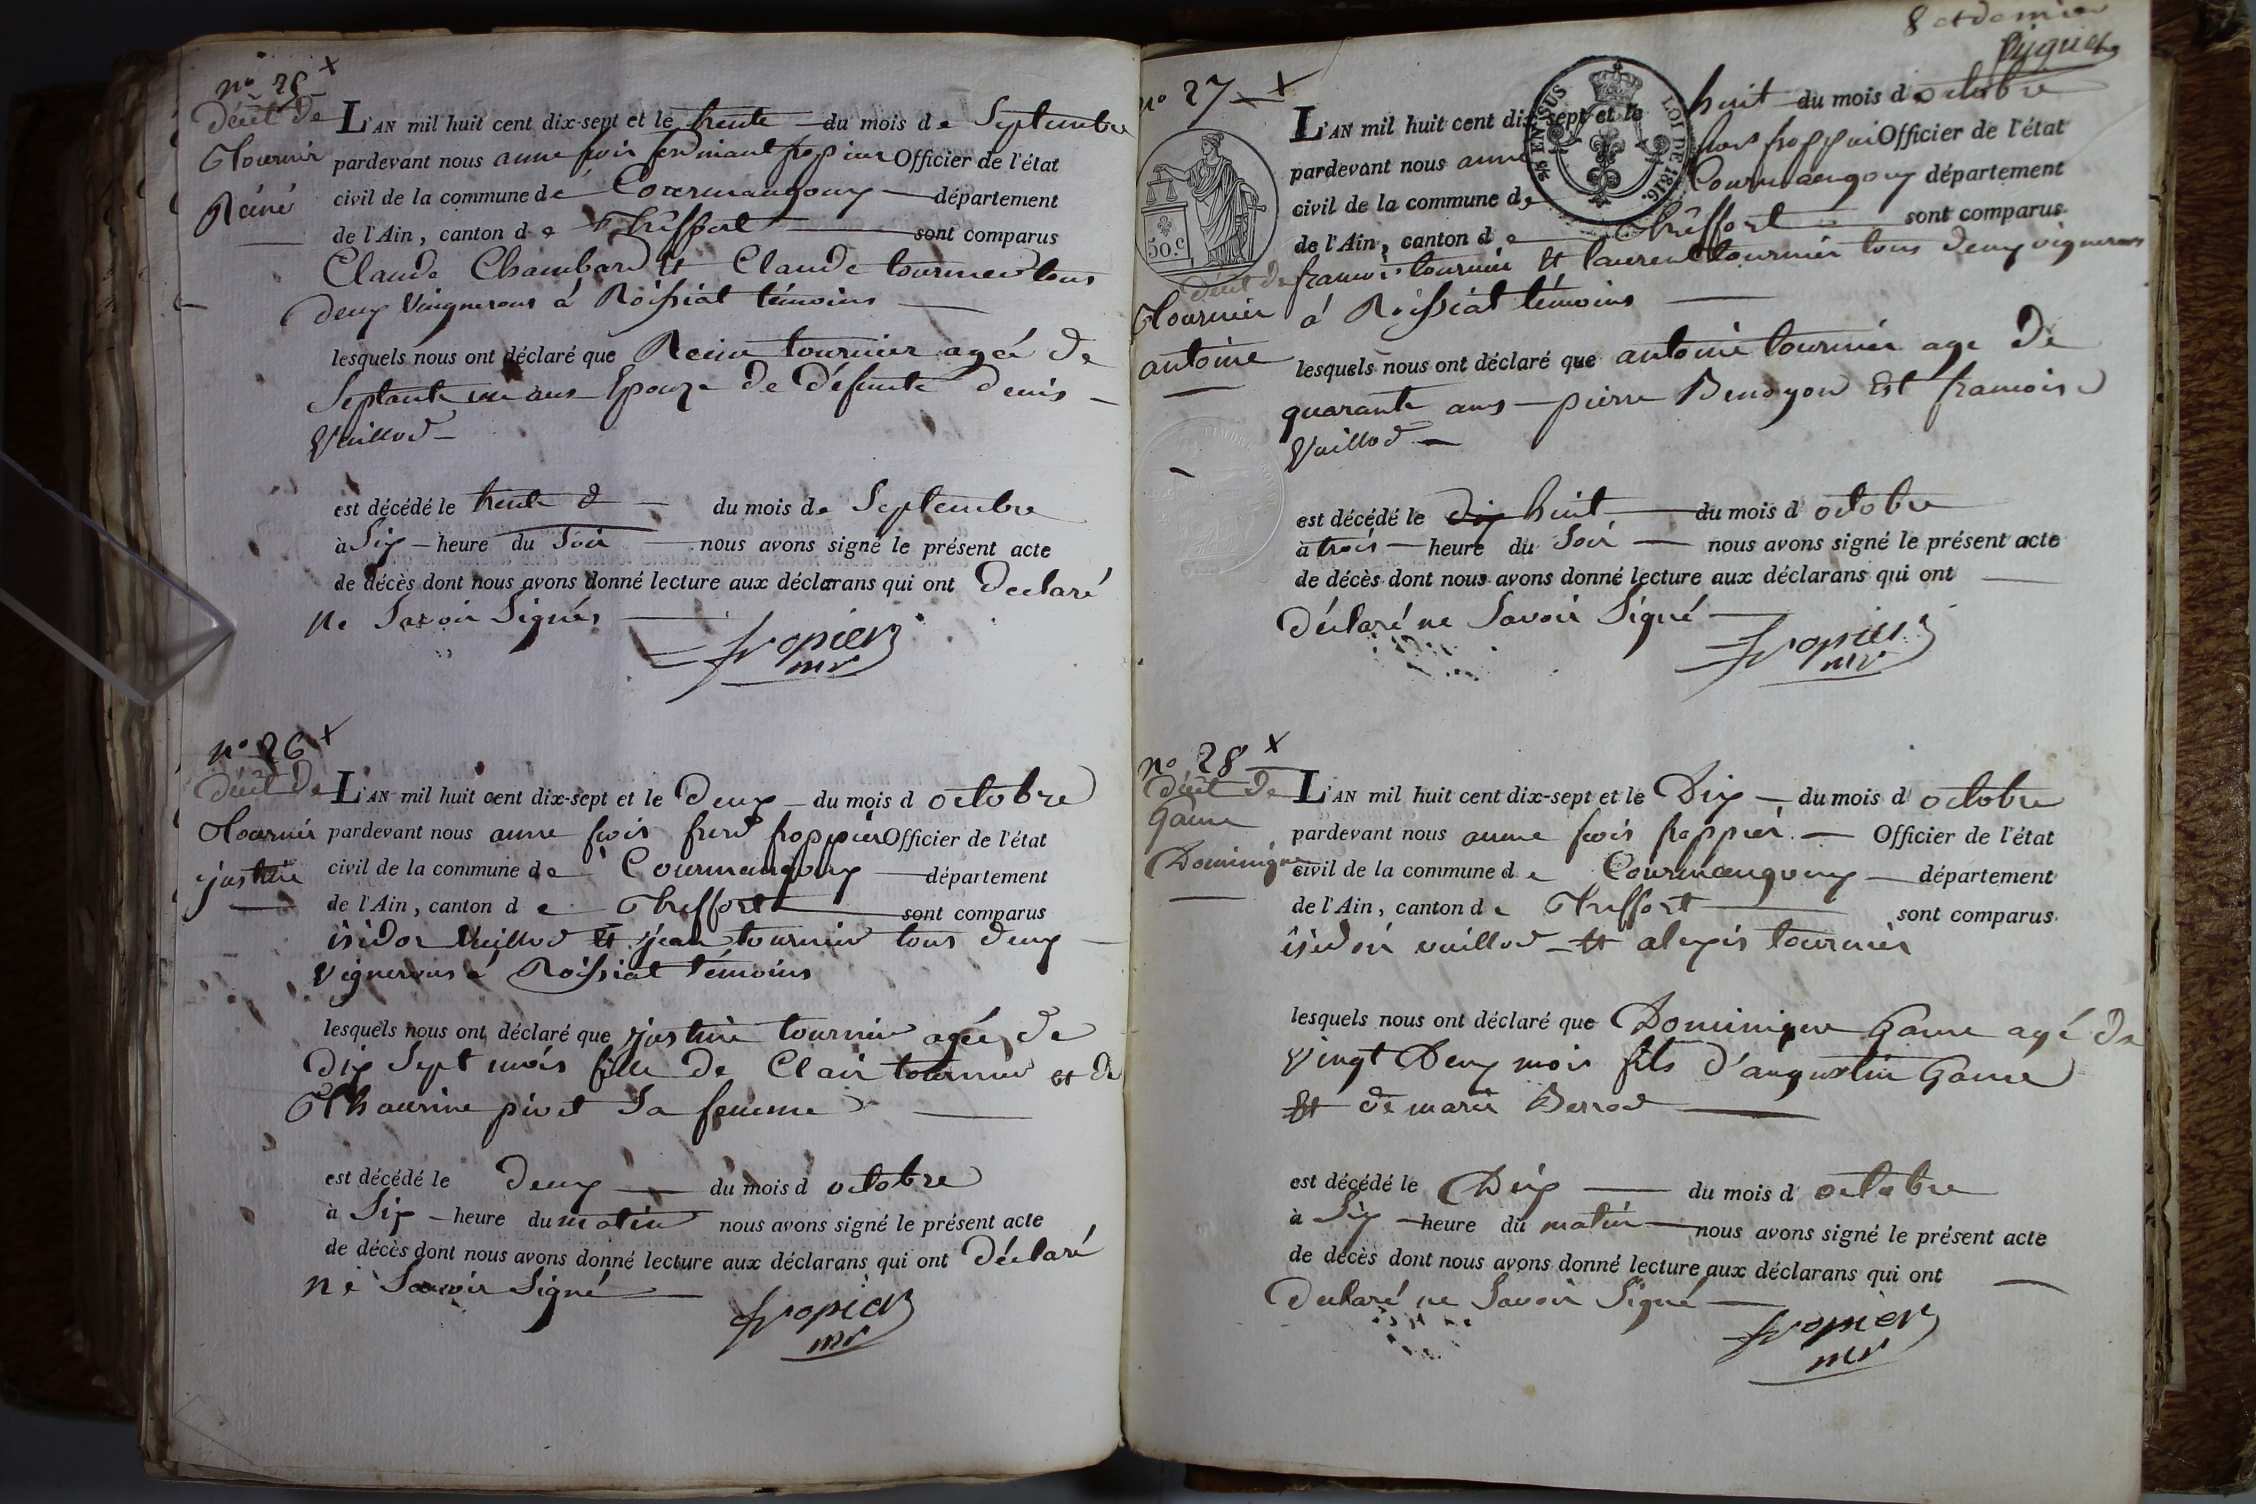 n° 25 x
décit de
Tournier
Reine
L'AN mil huit cent dix-sept et le trente du mois de Septembre
pardevant nous anne fois ferdinant fropier Officier de l'état
civil de la commune de Courmangoux département
de l'Ain, canton de Treffort sont comparus
Claude Chambard et Claude tournier tous
deux Vingnerons á Roissiat témoins
lesquels nous ont déclaré que Reine tournier agée de
Septante un ans Epouze de défunte denis
Vuillod
est décédé le trente du mois de Septembre
à Six heure du Soir nous avons signé le présent acte
de décès dont nous avons donné lecture aux déclarans qui ont Declaré
ne Savoir Signés
fropier
mr
n° 26 x
décit de
Tournier
justine
L'AN mil huit cent dix-sept et le Deux du mois d octobre
pardevant nous anne fois frerd froppier Officier de l'état
civil de la commune de Courmangoux département
de l'Ain, canton de Treffort sont comparus
isidor Vuillod et jean tournier tous deux
Vignerons á Roissiat témoins
lesquels nous ont déclaré que justine tournier agée de
Dix Sept mois fille de Clair tournier et de
Thaurine pivet Sa femme
est décédé le deux du mois d octobre
à Six heure du matin nous avons signé le présent acte
de décès dont nous avons donné lecture aux déclarans qui ont Déclaré
ne Savoir Signé
fropier
mr
8 et dernier
n° 27 x
EN SUS LOI DE 1816.
50.c
décit de
Tournier
antoine
L'AN mil huit cent dix-sept et le huit du mois d octobre
pardevant nous anne froppier Officier de l'état
civil de la commune de Courmangoux département
de l'Ain, canton de Treffort sont comparus
francois tournier et laurent tournier tous deux vignerons
á Roissiat témoins
lesquels nous ont déclaré que antoine tournier age de
quarante ans pierre Benoyon Est francoise
Vuillod
est décédé le dix huit du mois d' octobre
à trois heure du Soir nous avons signé le présent acte
de décès dont nous avons donné lecture aux déclarans qui ont
déclaré ne Savoir Signé
fropier
mr
n° 28 x
décit de
Game
Dominique
L'AN mil huit cent dix-sept et le Dix du mois d' octobre
pardevant nous anne fois froppier Officier de l'état
civil de la commune de Courmangoux département
de l'Ain, canton de Treffort sont comparus
isidor vuillod et alexis tournier
lesquels nous ont déclaré que Dominique Game agé de
Vingt Deux mois fils d'augustin Game
Et de marie Berrod
est décédé le Dix du mois d' octobre
à Six heure du matin nous avons signé le présent acte
de décès dont nous avons donné lecture aux déclarans qui ont
Declaré ne Savoir Signé
fropier
mr